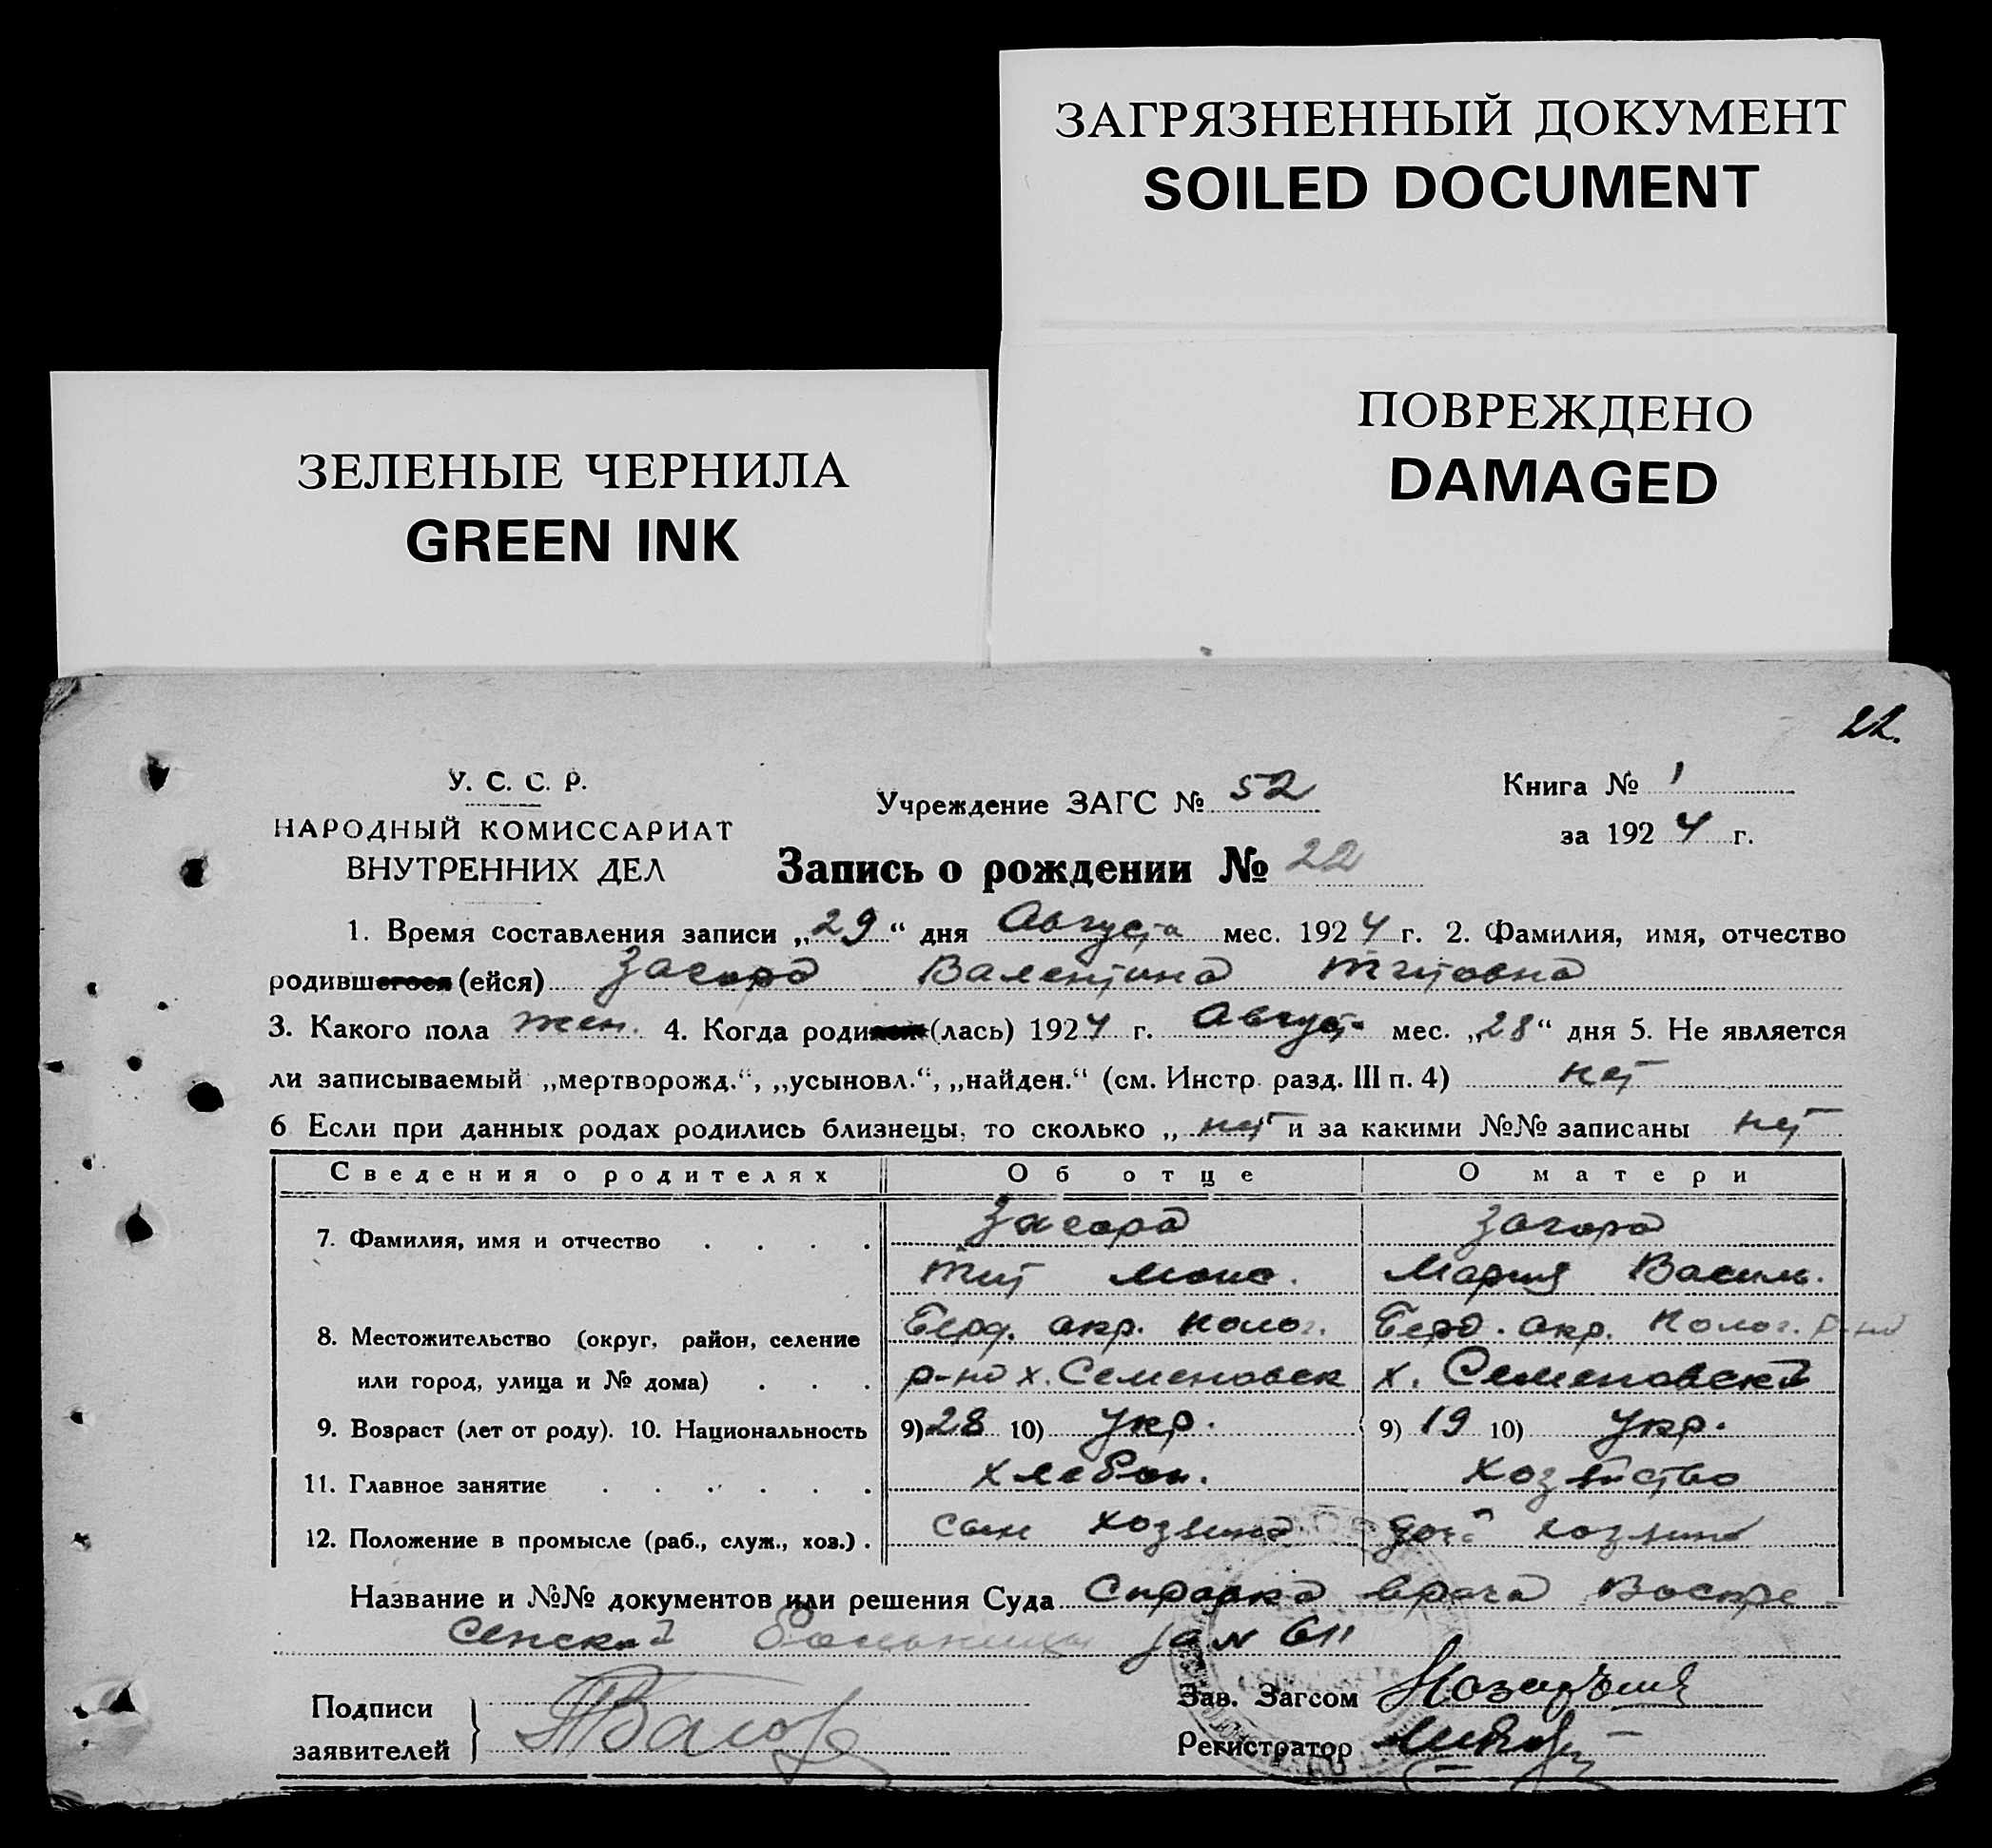 ЗАГРЯЗНЕННЫЙ ДОКУМЕНТ
SOILED DOCUMENT
ПОВРЕЖДЕНО
DAMAGED
ЗЕЛЕНЫЕ ЧЕРНИЛА
GREEN INK
22.
У. С. С. Р.
НАРОДНЫЙ КОМИССАРИАТ
ВНУТРЕННИХ ДЕЛ
Учреждение ЗАГС № 52
Книга № 1
за 1924 г.
Запись о рождении № 22
1. Время составления записи „29“ дня Августа мес. 1924 г. 2. Фамилия, имя, отчество
родившегося (ейся) Загора Валентина Титовна
3. Какого пола жен. 4. Когда родился (лась) 1924 г. Август мес. „28“ дня 5. Не является
ли записываемый „мертворожд.“, „усыновл.“, „найден.“ (см. Инстр. разд. III п. 4) нет
6 Если при данных родах родились близнецы, то сколько „ нет и за какими №№ записаны нет
Сведения о родителях Об отце О матери
7. Фамилия, имя и отчество Загора Загора
Тит Моис. Мария Васил.
8. Местожительство (округ, район, селение Берд. окр. Полог. Берд. окр. Полог. р-на
или город, улица и № дома) р-на х. Семеновск х. Семеновский
9. Возраст (лет от роду). 10. Национальность 9) 28 10) Укр. 9) 19 10) Укр.
11. Главное занятие хлебоп. хозяйство
12. Положение в промысле (раб., служ., хоз.) сын хозяина хозяина
Название и №№ документов или решения Суда Справка врача Воскре
сенской больницы за № 611
Подписи
заявителей
Зав. Загсом
Регистратор